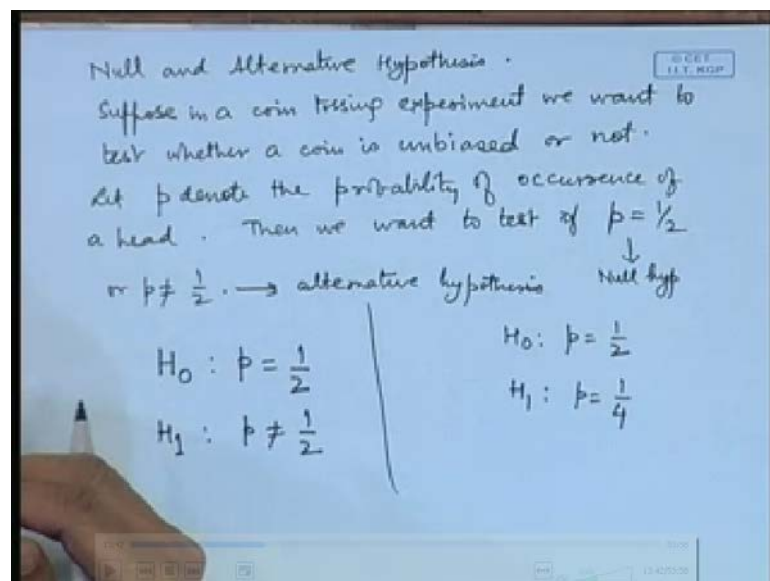 Null and Alternative Hypothesis.
© CET
I.I.T. KGP
Suppose in a coin tossing experiment we want to
test whether a coin is unbiased or not.
Let p denote the probability of occurrence of
a head. Then we want to test if p = 1/2
↓
or p ≠ 1/2. → alternative hypothesis Null hyp
H₀ : p = 1/2
H₁ : p ≠ 1/2
H₀ : p = 1/2
H₁ : p = 1/4